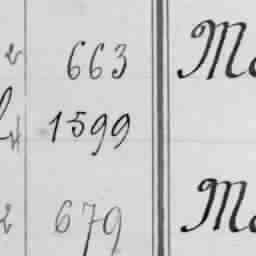 2 663 Ma
1599
2 679 Ma